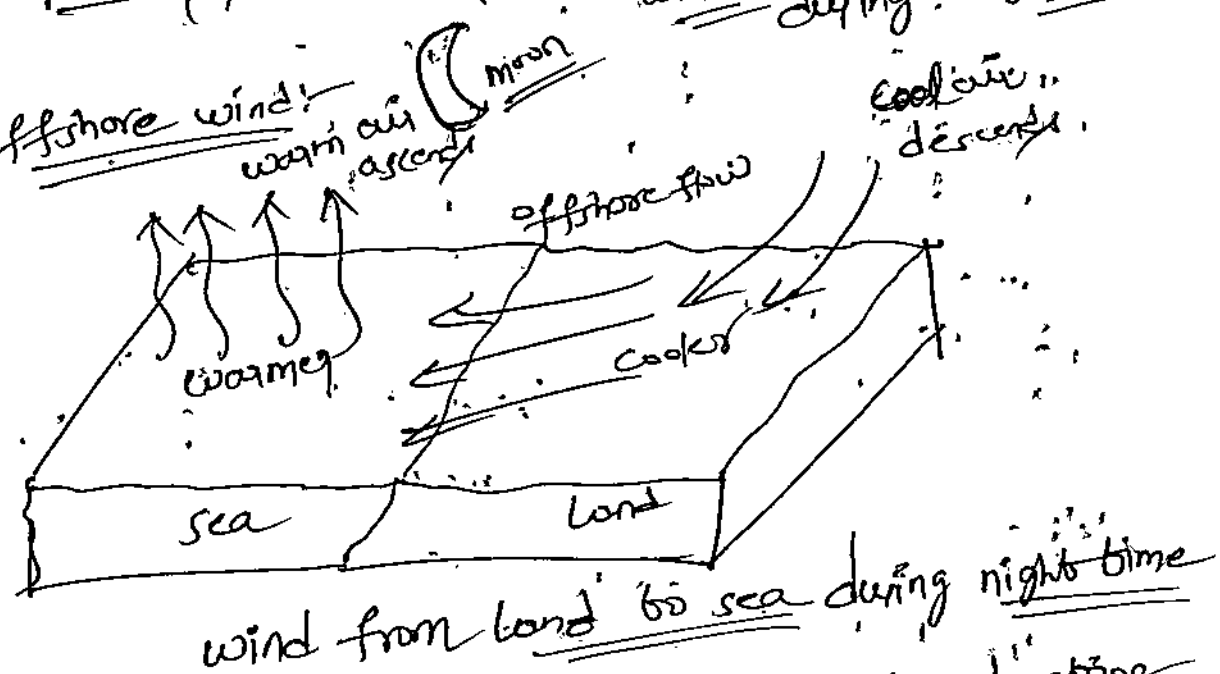 during.
ffshore wind:-
moon
warm air
ascends
cool air
descends.
offshore flow
warmer
cooler
sea
Land
wind from Land to sea during night time